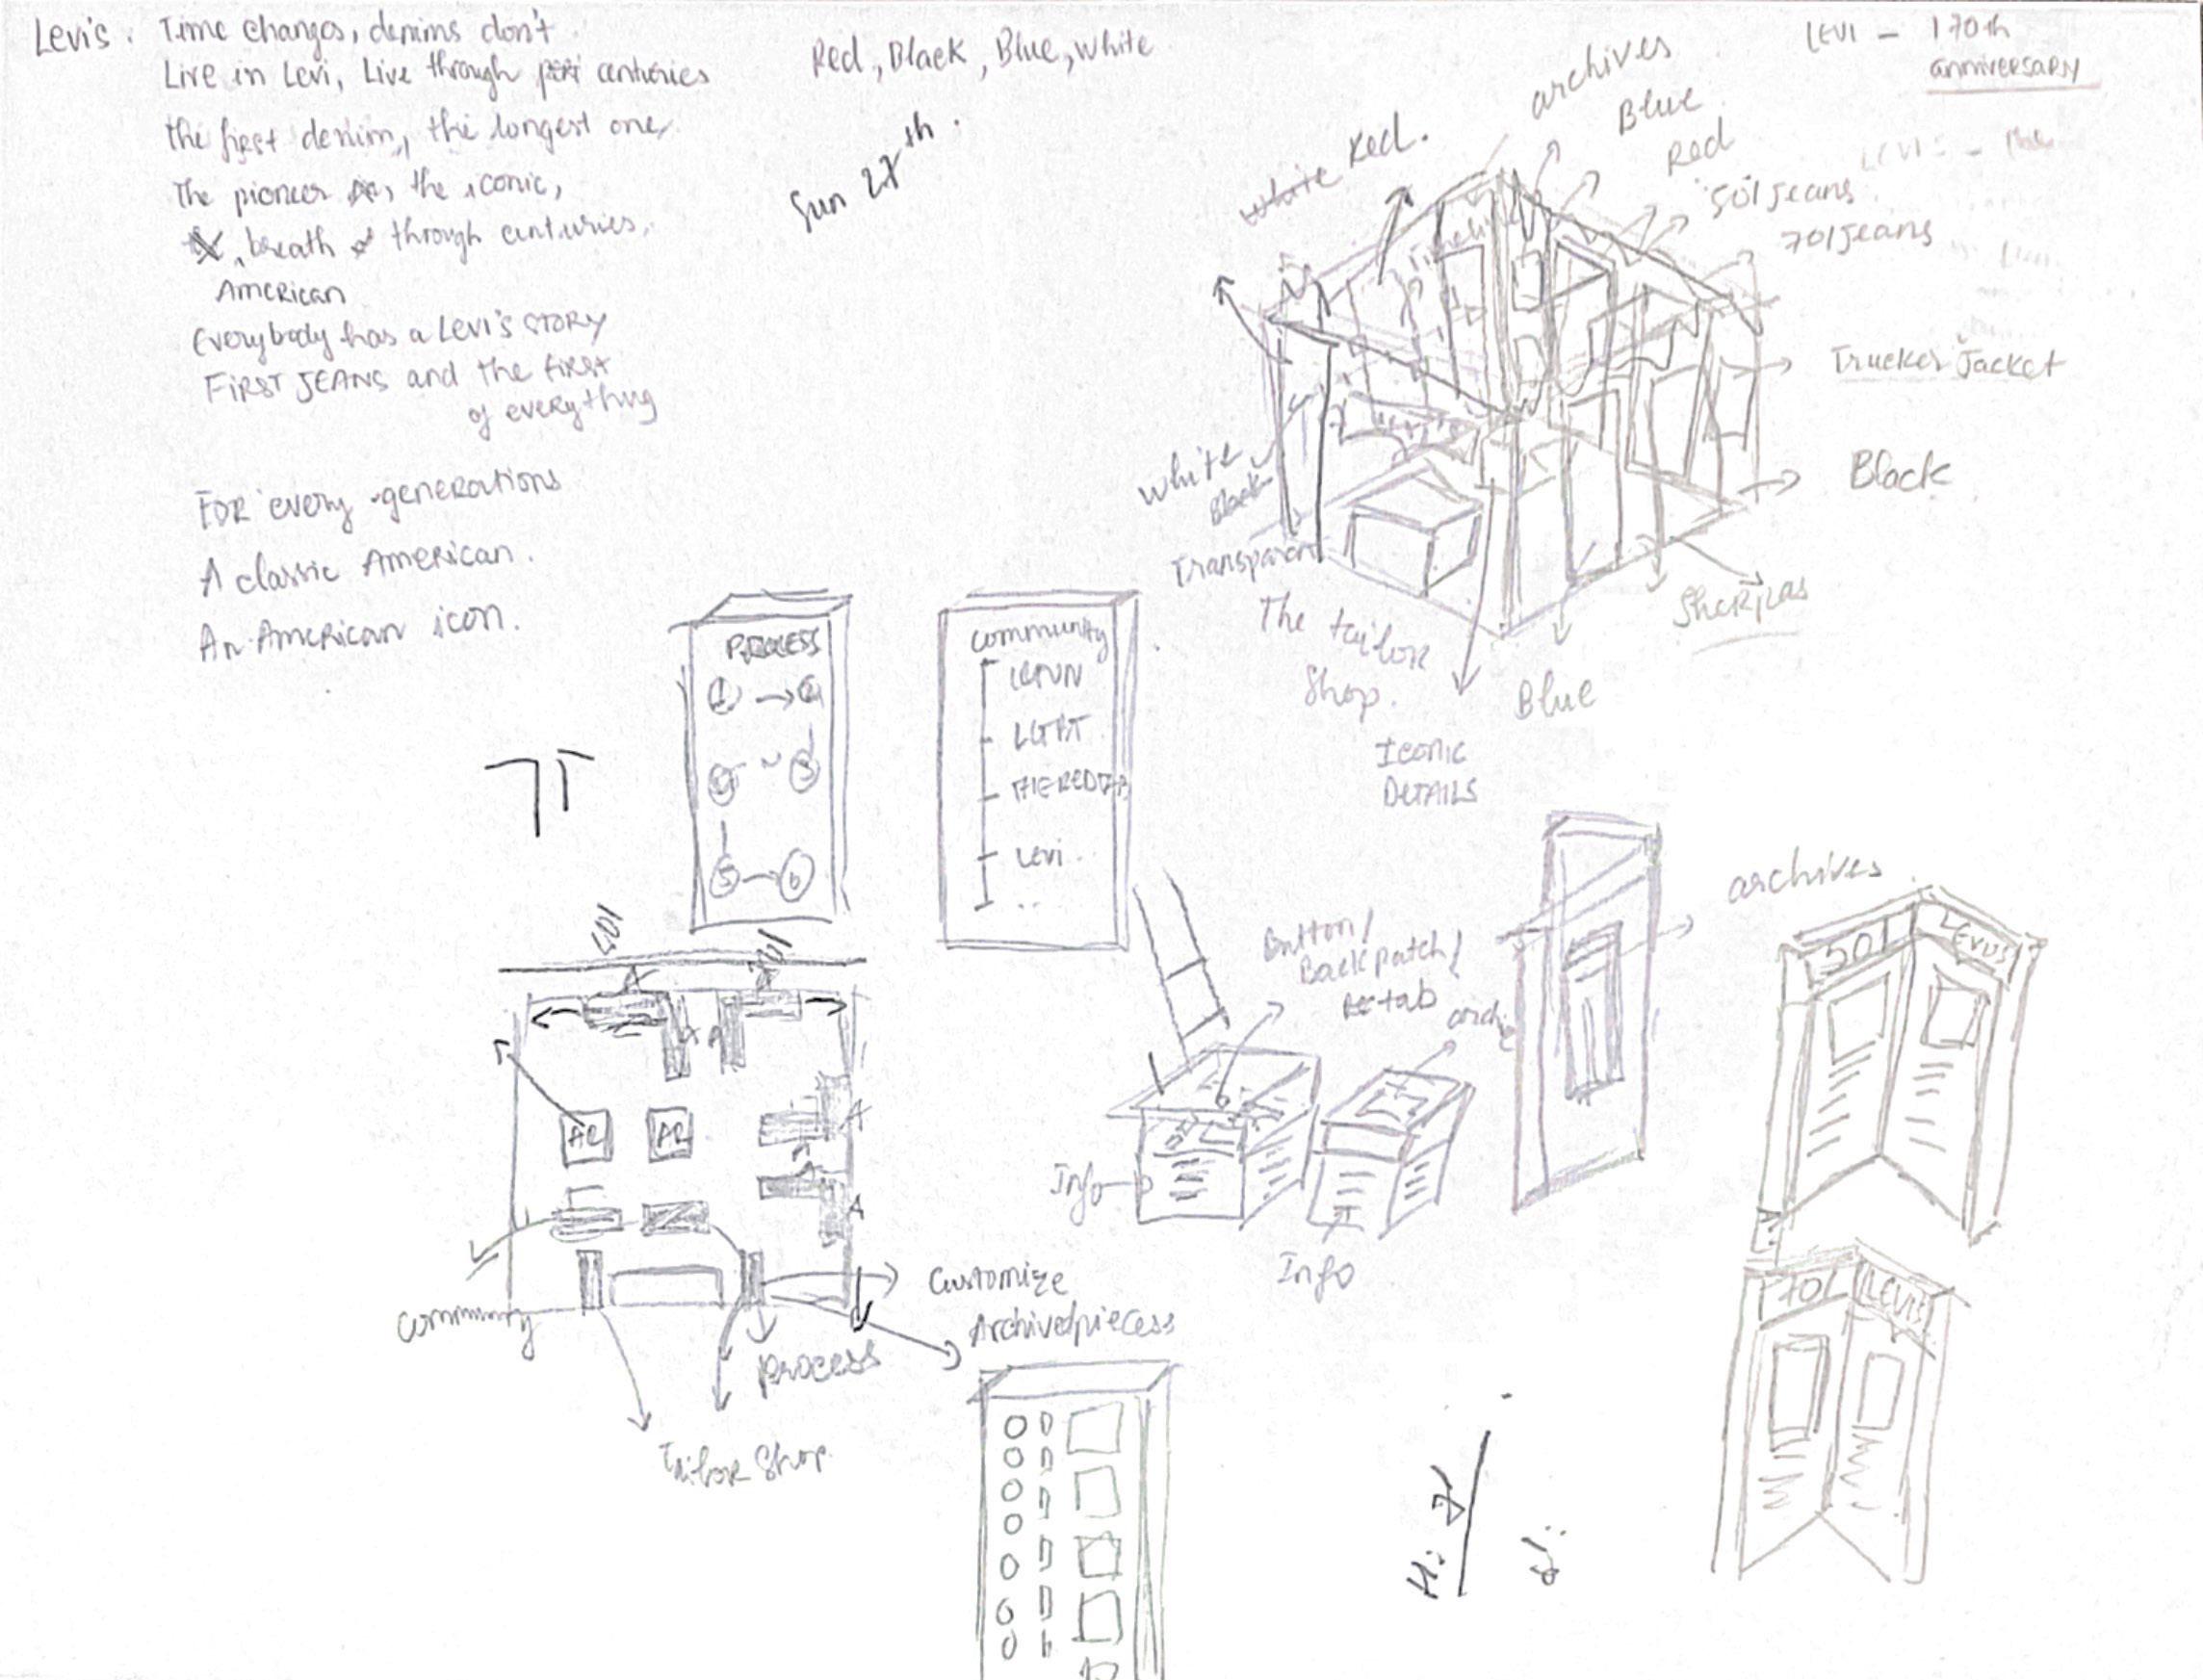 Levi's. Time changes, denims don't.
Live in Levi, Live through centuries
the first denim, the longest one,
The pioneer, the iconic,
breath through centuries,
American
Everybody has a Levi's STORY
FIRST JEANS and the first
of everything
FOR every generations
A classic American.
An American icon.
Red, Black, Blue, White
Sun 27th.
LEVI - 170th
anniversary
archives
Blue
Red
501 Jeans
701 Jeans
White Red.
Timeline
Trucker Jacket
Black
Sherpas
White
Black
Transparent
The tailor
Shop.
Blue
Iconic
DETAILS
PROCESS
1 2
4 3
5 6
community
Levi
501
701
A A
A A
AR AR
A
A
A
A
community
Tailor Shop
process
Customize
Archived piecess
Button/
Back patch/
tab
Info
Info
archives
501 LEVI'S
701 LEVI'S
Hi